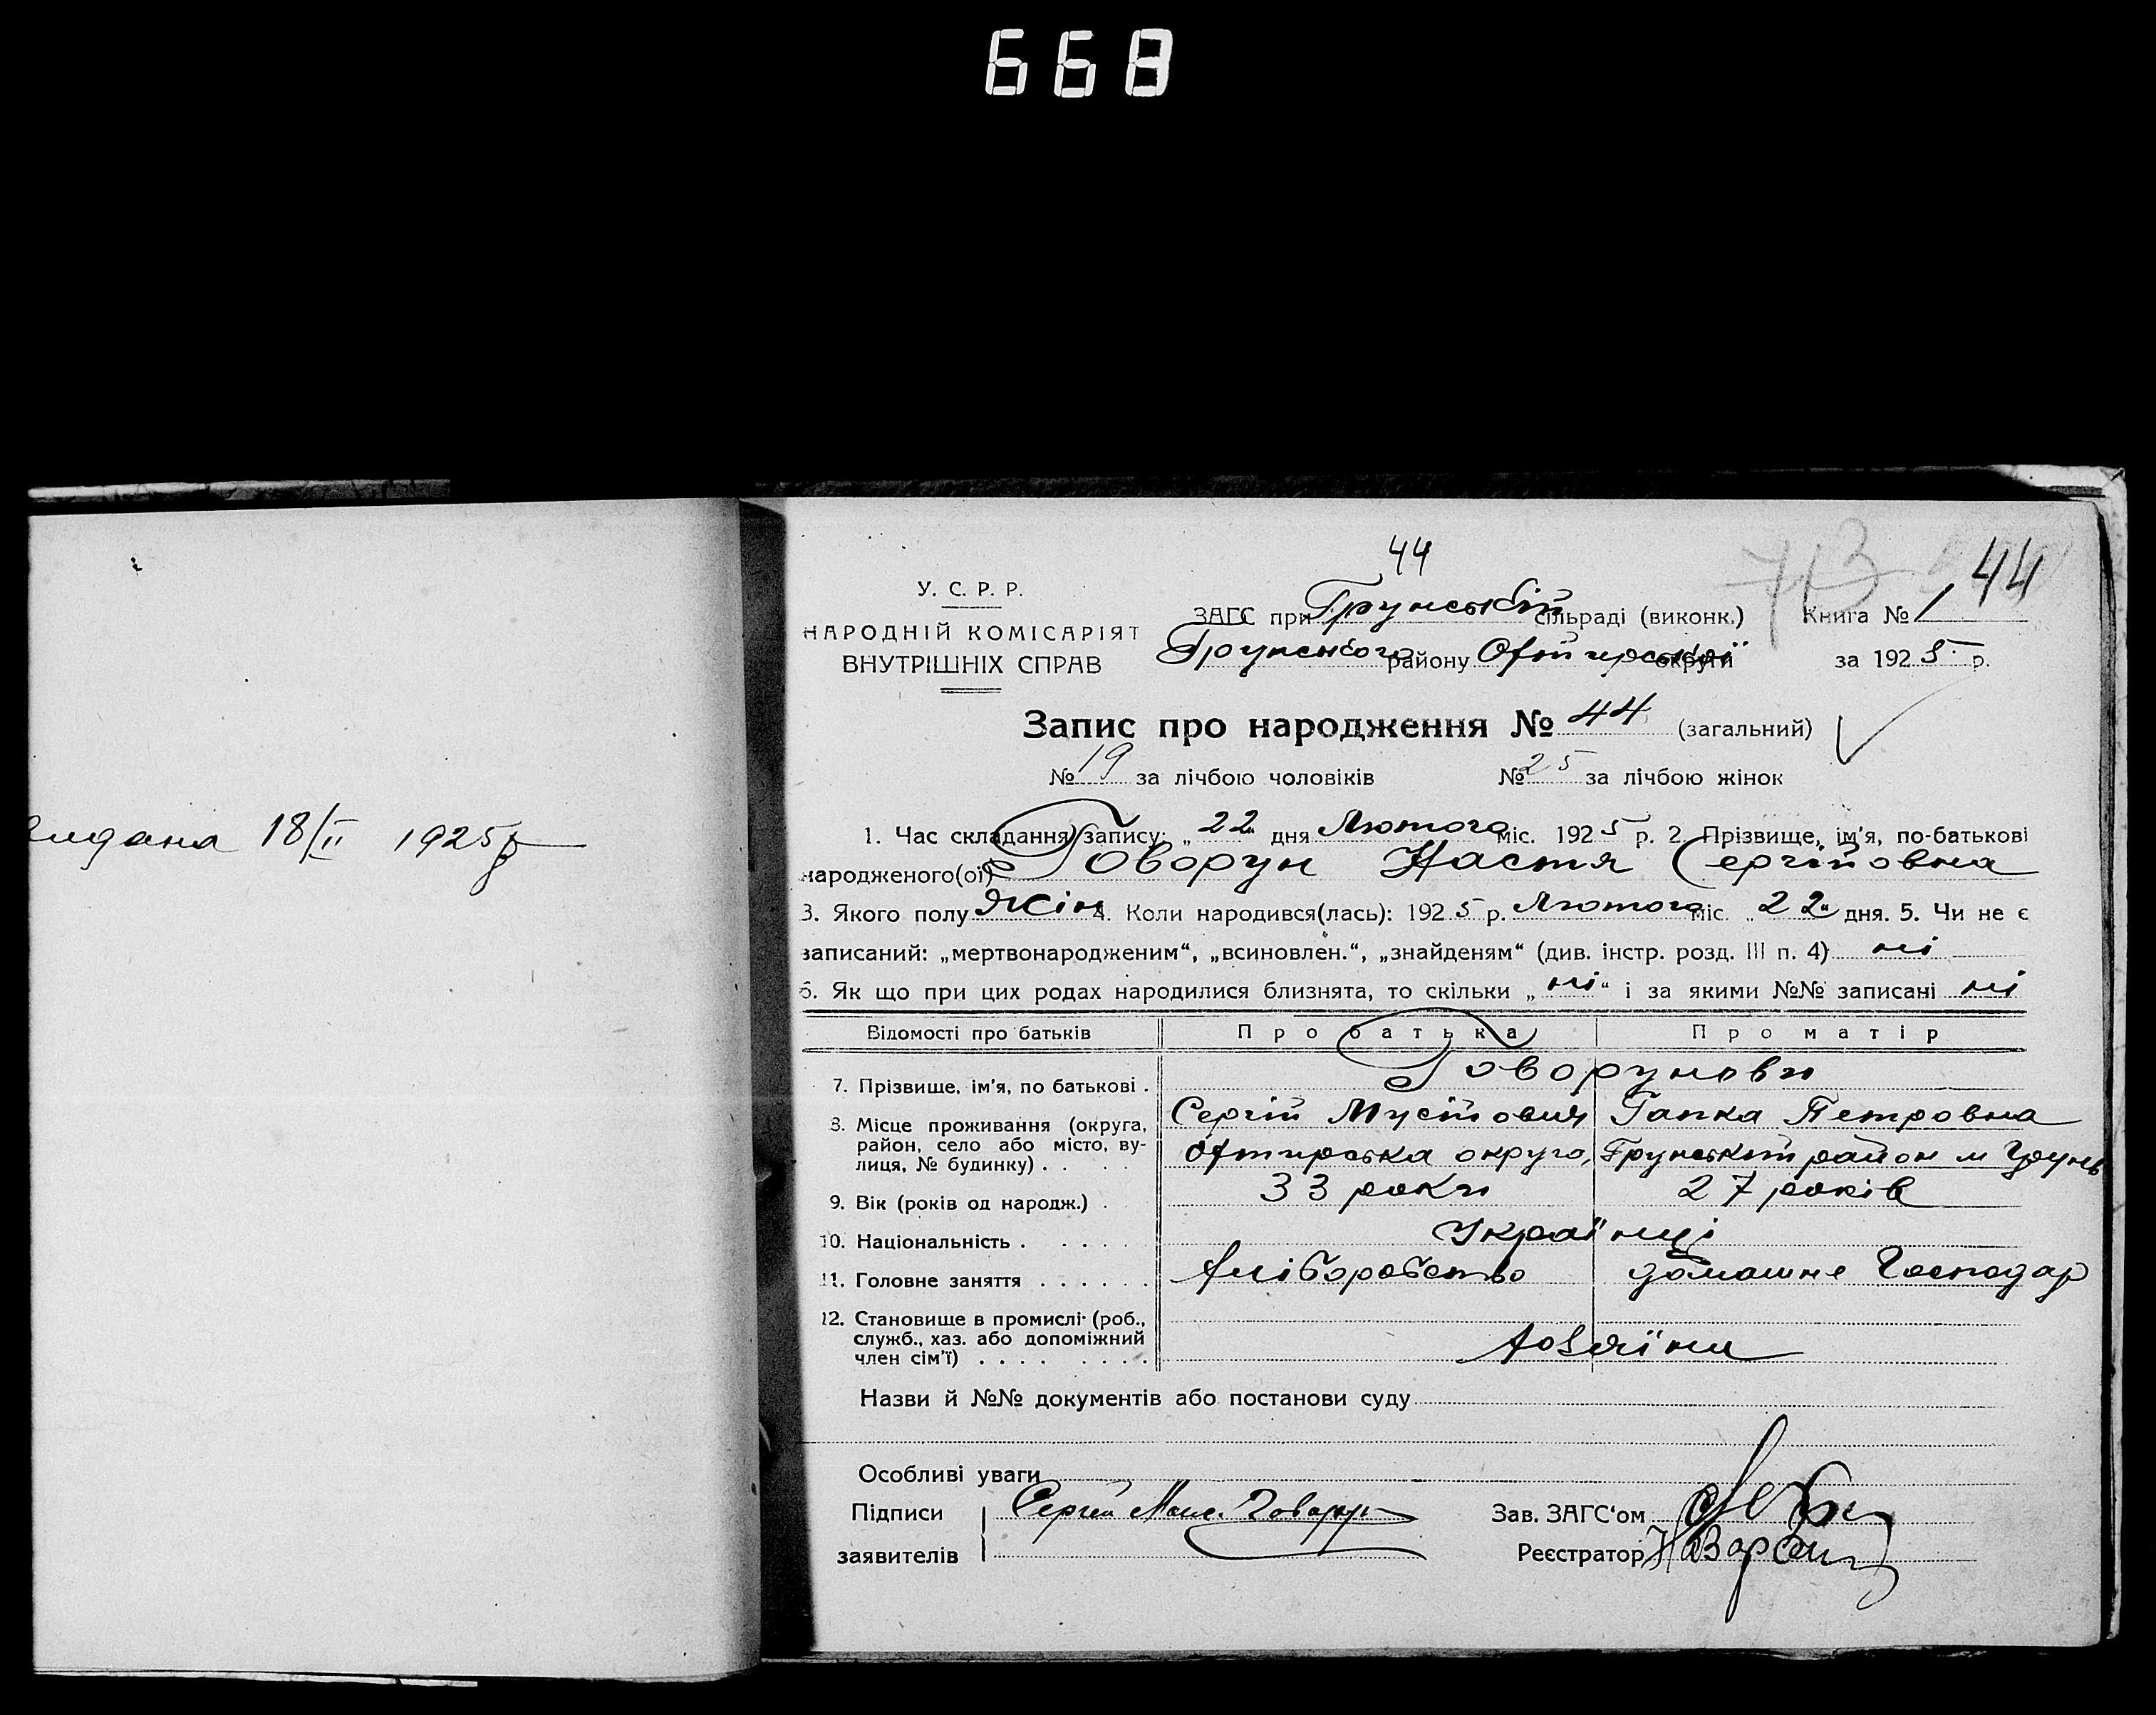 668
18/II 1925 р
44
713
44
У. С. Р. Р.
НАРОДНІЙ КОМІСАРІЯТ
ВНУТРІШНІХ СПРАВ
ЗАГС при Грунській сільраді (виконк.) Книга № 1
Грунського району Охтирської округи за 1925 р.
Запис про народження № 44 (загальний)
№ 19 за лічбою чоловіків № 25 за лічбою жінок
1. Час складання запису: „22“ дня Лютого міс. 1925 р. 2. Прізвище, ім'я, по-батькові
народженого(ої) Говорун Настя Сергійовна
3. Якого полу Жін 4. Коли народився(лась): 1925 р. Лютого міс. „22“ дня. 5. Чи не є
записаний: „мертвонародженим“, „всиновлен.“, „знайденям“ (див. інстр. розд. III п. 4) ні
6. Як що при цих родах народилися близнята, то скільки „ні“ і за якими №№ записані ні
Відомості про батьків Про батька Про матір
7. Прізвище, ім'я, по батькові . Говорунови
Сергій Мусійович Гапка Петровна
8. Місце проживання (округа, район, село або місто, вулиця, № будинку) . . Охтирська округа, Грунський район м Грунь
9. Вік (років од народж.) . 33 роки 27 років
10. Національність . . . . . Українці
11. Головне заняття . . . . . . хліборобство домашнє Господар
12. Становище в промислі (роб.,
служб., хаз. або допоміжний
член сім'ї) . . . . . . . . Хозяїни
Назви й №№ документів або постанови суду
Особливі уваги
Підписи Сергій Говорун
заявителів
Зав. ЗАГС'ом
Реєстратор